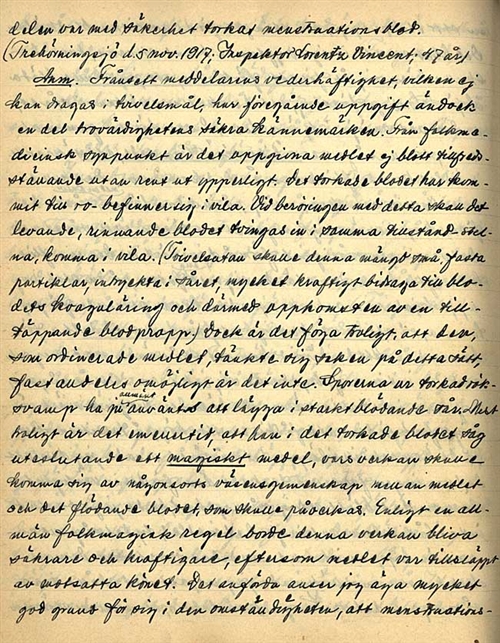 delen var med säkerhet torkat menstruationsblod.
(Trehörningsjö d. 5 nov. 1917. Inspektor Lorentz Vincent, 47 år)
Anm. Frånsett meddelarens vederhäftighet, vilken ej
kan dragas i tvivelsmål, har föregående uppgift ändock
en del trovärdighetens säkra kännemärken. Från folkme-
dicinsk synpunkt är det uppgivna medlet ej blott tillfreds-
ställande utan rent ut ypperligt. Det torkade blodet har kom-
mit till ro - befinner sig i vila. Vid beröringen med detta skall det
levande, rinnande blodet tvingas in i samma tillstånd - stel-
na, komma i vila. (Tvivelsutan skulle denna mängd små, fasta
partiklar, intryckta i såret, mycket kraftigt bidraga till blo-
dets koagulering och därmed uppkomsten av en till-
täppande blodpropp.) Dock är det föga troligt, att den,
som ordinerade medlet, tänkte sig saken på detta sätt,
fast andeles omöjligt är det inte. Sporerna ur torkad rök-
svamp ha ju använts att lägga i starkt blödande sår. Mest
troligt är det emellertid, att han i det torkade blodet såg
uteslutande ett magiskt medel, vars verkan skulle
komma sig av någonsorts väsensgemenskap mellan medlet
och det flödande blodet, som skulle påverkas. Enligt en all-
män folkmagisk regel borde denna verkan bliva
säkrare och kraftigare, eftersom medlet var tillsläppt
av motsatta könet. Det anförda anser jag äga mycket
god grund för sig i den omständigheten, att menstruations-